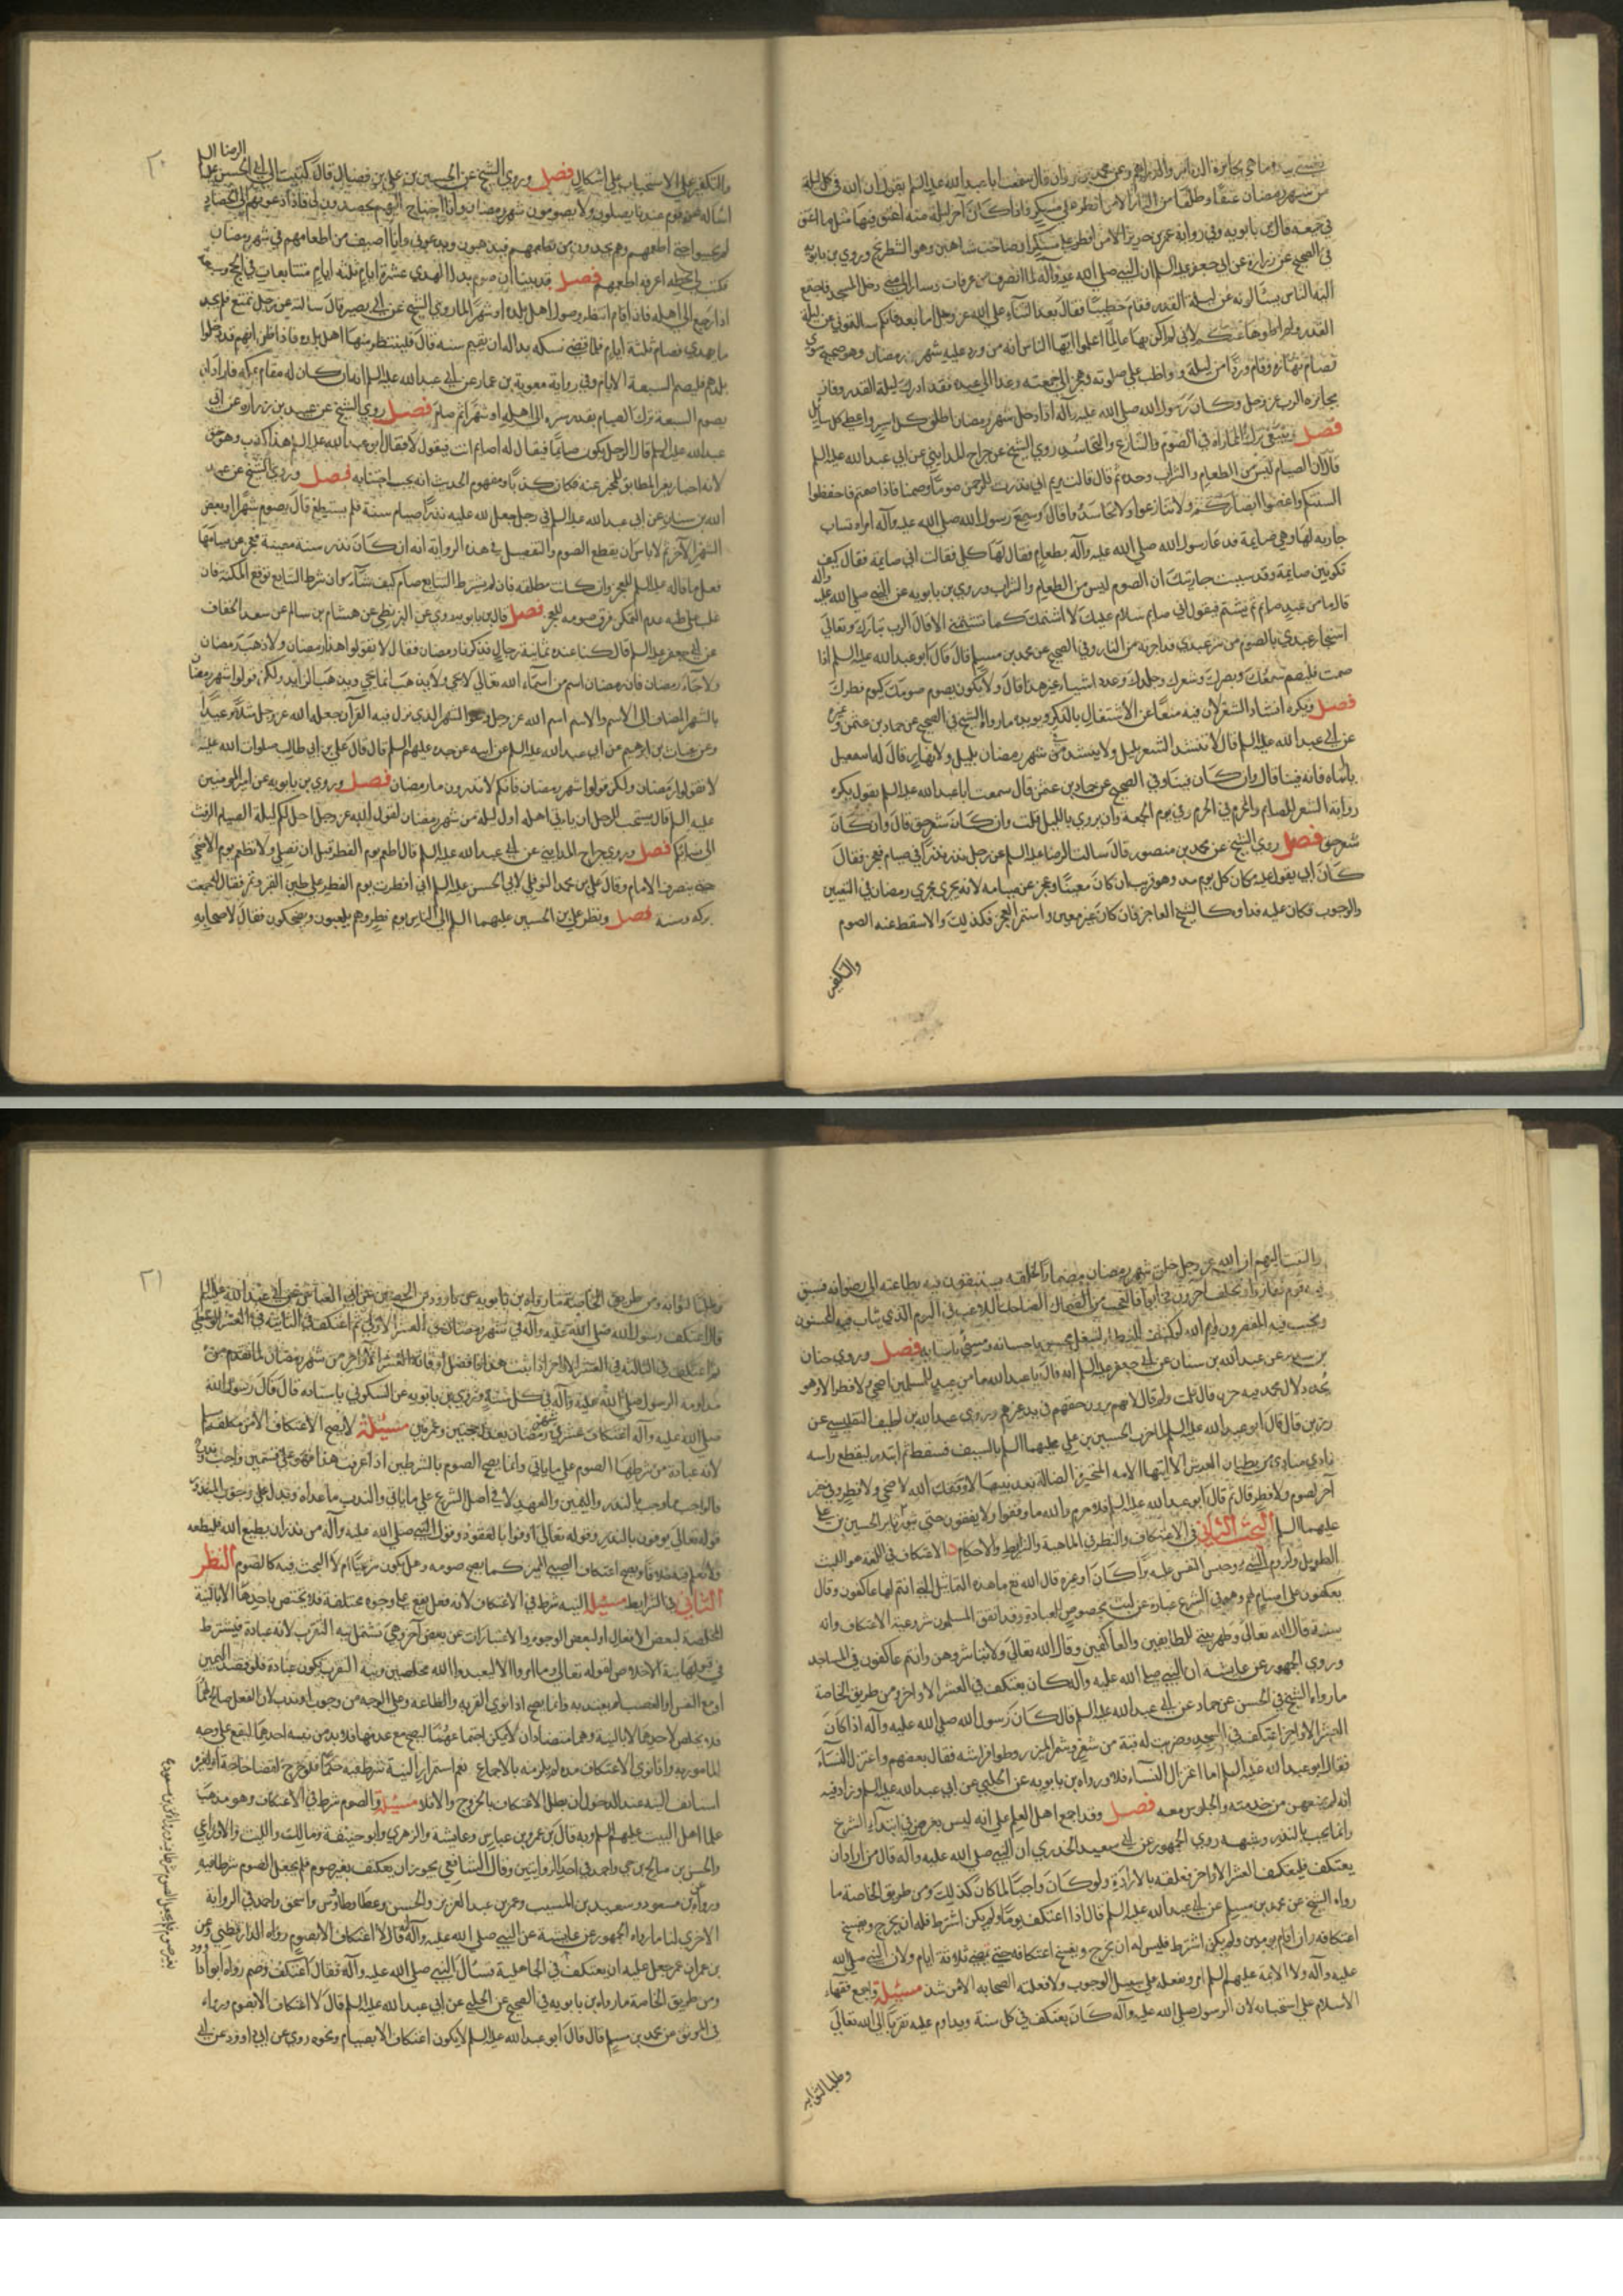 من شهر رمضان عتقا وطلقا من النار الا من افطر على مسكر فاذا كان آخر ليلة منه اعتق فيها مثل ما اعتق
في جميعه قال بن بابويه وفي رواية عمر بن يزيد الا من افطر على مسكر او صاحب شاهين وهو الشطرنج وروى بن بابويه
في الصحيح عن زرارة عن ابي جعفر عليه السلم ان النبي صلى الله عليه وآله لما انصرف من عرفات وسار الى منى دخل المسجد فاجتمع
اليه الناس يسألونه عن ليلة القدر فقام خطيبا فقال بعد الثناء على الله عز وجل اما بعد فانكم سالتموني عن ليلة
القدر ولم اطوها عنكم لاني لم اكن بها عالما اعلموا ايها الناس انه من ورد عليه شهر رمضان وهو صحيح سوي
فصام نهاره وقام وردا من ليله وواظب على صلوته وهجر الى جمعته وغدا الى عيده فقد ادرك ليلة القدر وفاز
بجايزة الرب عز وجل وكان رسول الله صلى الله عليه وآله اذا دخل شهر رمضان اطلق كل اسير واعطى كل سايل
فصل وينبغي ترك المماراة في الصوم والتنازع والتحاسد روى الشيخ عن جراح المدايني عن ابي عبد الله عليه السلم
قال ان الصيام ليس من الطعام والشراب وحده ثم قال قالت مريم اني نذرت للرحمن صوما وصمتا فاذا صمتم فاحفظوا
السنتكم وغضوا ابصاركم ولا تنازعوا ولا تحاسدوا قال وسمع رسول الله صلى الله عليه وآله امراة تساب
جارية لها وهي صايمة فدعا رسول الله صلى الله عليه وآله بطعام فقال لها كلي فقالت اني صايمة فقال كيف
تكونين صايمة وقد سببت جاريتك ان الصوم ليس من الطعام والشراب وروى بن بابويه عن النبي صلى الله عليه وآله
قال ما من عبد صايم يشتم فيقول اني صايم سلام عليك لا اشتمك كما تشتمني الا قال الرب تبارك وتعالى
استجار عبدي بالصوم من شر عبدي قد اجرته من النار وفي الصحيح عن محمد بن مسلم قال قال ابو عبد الله عليه السلم اذا
صمت فليصم سمعك وبصرك وشعرك وجلدك وعدد اشياء غير هذا قال ولا يكون يوم صومك كيوم فطرك
فصل ويكره انشاد الشعر لان فيه منعا عن الاشتغال بالذكر ويؤيده ما رواه الشيخ في الصحيح عن حماد بن عثمن وغيره
عن ابي عبد الله عليه السلم قال لا تنشد الشعر بليل ولا ينشد في شهر رمضان بليل ولا نهار قال له اسمعيل
يا ابتاه فانه فينا قال وان كان فينا وفي الصحيح عن حماد بن عثمن قال سمعت ابا عبد الله عليه السلم يقول يكره
رواية الشعر للصايم والمحرم في الحرم وفي يوم الجمعة وان يروى بالليل قلت وان كان شعر حق قال وان كان
شعر حق فصل روى الشيخ عن محمد بن منصور قال سالت الرضا عليه السلم عن رجل نذر نذرا في صيام فعجز فقال
كان ابي يقول عليه مكان كل يوم مد وهو قريب ان كان معينا وعجز عن صيامه لانه يجري مجرى رمضان في التعيين
والوجوب فكان عليه فداء كالشيخ العاجز فان كان غير معين واستمر العجز فكذلك والا سقط عنه الصوم
والتكفير
٢٠
والتكفير على الاستحباب على اشكال فصل وروى الشيخ عن الحسين بن علي بن فضال قال كتبت الى ابي الحسن الرضا عليه السلم
اساله عن قوم عندنا يصلون ولا يصومون شهر رمضان وانا احتاج اليهم يحصدون لي فاذا دعوتهم الى الحصاد
لم يجيبوا حتى اطعمهم وهم يجدون من يطعمهم فيذهبون ويدعوني وانا اضيق من اطعامهم في شهر رمضان
فكتب بخطه اعرفه اطعمهم فصل قد بينا ان صوم بدل الهدي عشرة ايام ثلثة ايام متتابعات في الحج وسبعة
اذا رجع الى اهله فاذا اقام انتظر وصول اهل بلده او شهرا لما روى الشيخ عن ابي بصير قال سالته عن رجل تمتع فلم يجد
ما يهدي فصام ثلثة ايام فلما قضى نسكه بدا له ان يقيم سنة قال فلينتظر منهل اهل بلده فاذا ظن انهم قد دخلوا
بلدهم فليصم السبعة الايام وفي رواية معوية بن عمار عن ابي عبد الله عليه السلم انه ان كان له مقام بمكة فاراد ان
يصوم السبعة ترك الصيام بقدر سيره الى اهله او شهرا ثم صام فصل روى الشيخ عن عبيد بن زرارة عن ابي
عبد الله عليه السلم قال الرجل يكون صايما فيقال له اصايم انت فيقول لا فقال ابو عبد الله عليه السلم هذا كذب وهو حق
لانه اخبار بغير المطابق للمخبر عنه فكان كذبا ومفهوم الحديث انه يجب اجتنابه فصل وروى الشيخ عن عبد
الله بن سنان عن ابي عبد الله عليه السلم في رجل جعل لله عليه نذرا صيام سنة فلم يستطع قال يصوم شهرا وبعض
الشهر الآخر ثم لا باس ان يقطع الصوم والتفصيل في هذه الرواية انه ان كان نذر سنة معينة فعجز عن صيامها
فعل ما قاله عليه السلم للعجز وان كانت مطلقة فان لم يشترط التتابع صام كيف شاء وان شرط التتابع توقع المكنة فان
غلب على ظنه عدم التمكن فرق صومه للعجز فصل قال بن بابويه روى عن البزنطي عن هشام بن سالم عن سعد الخفاف
عن ابي جعفر عليه السلم قال كنا عنده ثمانية رجال فذكرنا رمضان فقال لا تقولوا هذا رمضان ولا ذهب رمضان
ولا جاء رمضان فان رمضان اسم من اسماء الله تعالى لا يجي ولا يذهب انما يجي ويذهب الزايل ولكن قولوا شهر رمضان
بالشهر المضاف الى الاسم والاسم اسم الله عز وجل وهو الشهر الذي نزل فيه القرآن جعله الله عز وجل مثلا وعيدا
وعن غياث بن ابرهيم عن ابي عبد الله عليه السلم عن ابيه عن جده عليهم السلم قال قال علي بن ابي طالب صلوات الله عليه
لا تقولوا رمضان ولكن قولوا شهر رمضان فانكم لا تدرون ما رمضان فصل وروى بن بابويه عن امير المومنين
عليه السلم قال يستحب للرجل ان ياتي اهله اول ليلة من شهر رمضان لقول الله عز وجل احل لكم ليلة الصيام الرفث
الى نسائكم فصل وروى جراح المدايني عن ابي عبد الله عليه السلم قال اطعم يوم الفطر قبل ان تصلي ولا تطعم يوم الاضحى
حتى ينصرف الامام وقال علي بن محمد النوفلي لابي الحسن عليه السلم اني افطرت يوم الفطر على طين القبر وتمر فقال جمعت
بركة وسنة فصل ونظر علي بن الحسين عليهما السلم الى الناس يوم فطر وهم يلعبون ويضحكون فقال لاصحابه
والتفت اليهم ان الله عز وجل خلق شهر رمضان مضمارا لخلقه يستبقون فيه بطاعته الى رضوانه فسبق
فيه قوم ففازوا وتخلف آخرون فخابوا فالعجب من الضحاك الضاحك اللاعب في اليوم الذي يثاب فيه المحسنون
ويخيب فيه المقصرون وايم الله لو كشف الغطاء لشغل محسن باحسانه ومسيء باساءته فصل وروى حنان
بن سدير عن عبد الله بن سنان عن ابي جعفر عليه السلم انه قال يا عبد الله ما من عيد للمسلمين اضحى ولا فطر الا وهو
يجدد لآل محمد فيه حزن قال قلت ولم قال لانهم يرون حقهم في يد غيرهم وروى عبد الله بن لطيف التفليسي عن
رزين قال قال ابو عبد الله عليه السلم لما ضرب الحسين بن علي عليهما السلم بالسيف فسقط ثم ابتدر ليقطع راسه
نادى مناد من بطنان العرش الا ايتها الامة المتحيرة الضالة بعد نبيها لا وفقكم الله لاضحى ولا فطر وفي خبر
آخر لصوم ولا فطر قال ثم قال ابو عبد الله عليه السلم فلا جرم والله ما وفقوا ولا يوفقون حتى يثور ثاير الحسين بن علي
عليهما السلم البحث الثاني في الاعتكاف والنظر في الماهية والشرايط والاحكام الاعتكاف في اللغة هو اللبث
الطويل ولزوم الشيء وحبس النفس عليه برا كان او غيره قال الله تع ما هذه التماثيل التي انتم لها عاكفون وقال
يعكفون على اصنام لهم وهو في الشرع عبارة عن لبث مخصوص للعبادة وقد اتفق المسلمون على شرعية الاعتكاف وانه
سنة قال الله تعالى وطهر بيتي للطايفين والعاكفين وقال الله تعالى ولا تباشروهن وانتم عاكفون في المساجد
وروى الجمهور عن عايشة ان النبي صلى الله عليه وآله كان يعتكف في العشر الاواخر ومن طريق الخاصة
ما رواه الشيخ في الحسن عن حماد عن ابي عبد الله عليه السلم قال كان رسول الله صلى الله عليه وآله اذا كان
العشر الاواخر اعتكف في المسجد وضربت له قبة من شعر وشمر الميزر وطوى فراشه فقال بعضهم واعتزل النساء
فقال ابو عبد الله عليه السلم اما اعتزال النساء فلا ورواه بن بابويه عن الحلبي عن ابي عبد الله عليه السلم وزاد فيه
انه لم يمنعهن من خدمته والجلوس معه فصل وقد اجمع اهل العلم على انه ليس بفرض في ابتداء الشرع
وانما يجب بالنذر وشبهه روى الجمهور عن ابي سعيد الخدري ان النبي صلى الله عليه وآله قال من اراد ان
يعتكف فليعتكف العشر الاواخر فعلقه بالارادة ولو كان واجبا لما كان كذلك ومن طريق الخاصة ما
رواه الشيخ عن محمد بن مسلم عن ابي عبد الله عليه السلم قال اذا اعتكف يوما ولم يكن اشترط فله ان يخرج ويفسخ
اعتكافه وان اقام يومين ولم يكن اشترط فليس له ان يخرج ويفسخ اعتكافه حتى يمضي ثلاثة ايام ولان النبي صلى الله
عليه وآله ولا الائمة عليهم السلم امر وفعله على سبيل الوجوب ولا فعلته الصحابة الا من شذ مسئلة واجمع فقهاء
الاسلام على استحبابه لان الرسول صلى الله عليه وآله كان يعتكف في كل سنة ويداوم عليه تقربا الى الله تعالى
وطلبا لثوابه
٢١
وطلبا لثوابه ومن طريق الخاصة ما رواه بن بابويه عن داود بن الحصين عن ابي العباس عن ابي عبد الله عليه السلم
قال اعتكف رسول الله صلى الله عليه وآله في شهر رمضان في العشر الاولى ثم اعتكف في الثانية في العشر الوسطى
ثم اعتكف في الثالثة في العشر الاواخر اذا ثبت هذا فافضل اوقاته العشر الآواخر من شهر رمضان لما تقدم من
مداومة الرسول صلى الله عليه وآله في كل سنة وروى بن بابويه عن السكوني باسناده قال قال رسول الله
صلى الله عليه وآله اعتكاف عشر في شهر رمضان يعدل حجتين وعمرتين مسئلة لا يصح الاعتكاف الا من مكلف مسلم
لانه عبادة من شرطها الصوم على ما ياتي وانما يصح الصوم بالشرطين اذا عرفت هذا فهو على قسمين واجب وندب
فالواجب ما وجب بالنذر واليمين والعهد لا في اصل الشرع على ما ياتي والندب ما عداه ويدل على وجوب المنذور
قوله تعالى يوفون بالنذر وقوله تعالى اوفوا بالعقود وقول النبي صلى الله عليه وآله من نذر ان يطيع الله فليطعه
ولا نعلم فيه خلافا ويصح اعتكاف الصبي المميز كما يصح صومه وهل يكون شرعيا ام لا البحث فيه كالصوم النظر
الثاني في الشرايط مسئلة النية شرط في الاعتكاف لانه فعل يقع على وجوه مختلفة فلا يختص باحدها الا بالنية
المخلصة لبعض الافعال او لبعض الوجوه والاعتبارات عن بعض آخر وهي تشتمل نية التقرب لانه عبادة فيشترط
في قبولها نية الاخلاص لقوله تعالى وما امروا الا ليعبدوا الله مخلصين ونية التقرب ليكون عبادة فلو قصد اليمين
او منع النفس او الغضب لم يعتد به وانما يصح اذا نوى القربة والطاعة وعلى الوجه من وجوب او ندب لان الفعل صالح لهما
فلا يخلص لاحدهما الا بالنية وهما متضادان لا يمكن اجتماعهما ليصح مع عدمها فلا بد من نية احدهما ليقع على وجه
المامور به واذا نوى الاعتكاف مدة لم يلزمه بالاجماع نعم استمرار النية شرط فيه حكما فلو خرج لقضاء حاجة او لغيره
استانف النية عند الدخول ان بطل الاعتكاف بالخروج والا فلا مسئلة والصوم شرط في الاعتكاف وهو مذهب
علما اهل البيت عليهم السلم وبه قال بن عمر وبن عباس وعايشة والزهري وابو حنيفة ومالك والليث والاوزاعي
والحسن بن صالح بن حي واحمد في احدى الروايتين وقال الشافعي يجوز ان يعتكف بغير صوم فلم يجعل الصوم شرطا فيه
ورواه عن بن مسعود وسعيد بن المسيب وعمر بن عبد العزيز والحسن وعطا وطاوس واسحق واحمد في الرواية
الاخرى لنا ما رواه الجمهور عن عايشة عن النبي صلى الله عليه وآله انه قال لا اعتكاف الا بصوم رواه الدارقطني وعن
بن عمر ان عمر جعل عليه ان يعتكف في الجاهلية فسأل النبي صلى الله عليه وآله فقال اعتكف وصم رواه ابو داود
ومن طريق الخاصة ما رواه بن بابويه في الصحيح عن الحلبي عن ابي عبد الله عليه السلم قال لا اعتكاف الا بصوم وما رواه
في الموثق عن محمد بن مسلم قال قال ابو عبد الله عليه السلم لا يكون اعتكاف الا بصيام ونحوه روى عن ابي داود عن ابي